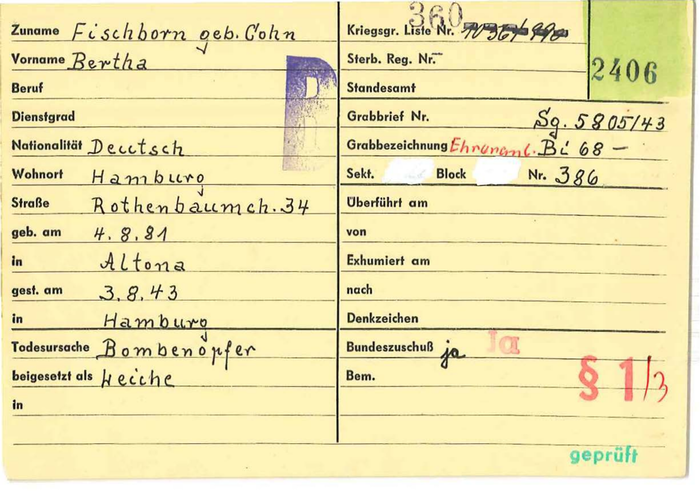 Zuname Fischborn geb. Cohn
Vorname Bertha
Beruf
Dienstgrad
Nationalität Deutsch
Wohnort Hamburg
Straße Rothenbaumch. 34
geb. am 4.8.81
in Altona
gest. am 3.8.43
in Hamburg
Todesursache Bombenopfer
beigesetzt als Leiche
in
B
360
Kriegsgr. Liste Nr.
Sterb. Reg. Nr.
Standesamt
2406
Grabbrief Nr. Sg. 5805/43
Grabbezeichnung Ehrenanl. Bi 68 –
Sekt. Block Nr. 386
Überführt am
von
Exhumiert am
nach
Denkzeichen
Bundeszuschuß ja Ja
Bem. § 1/3
geprüft